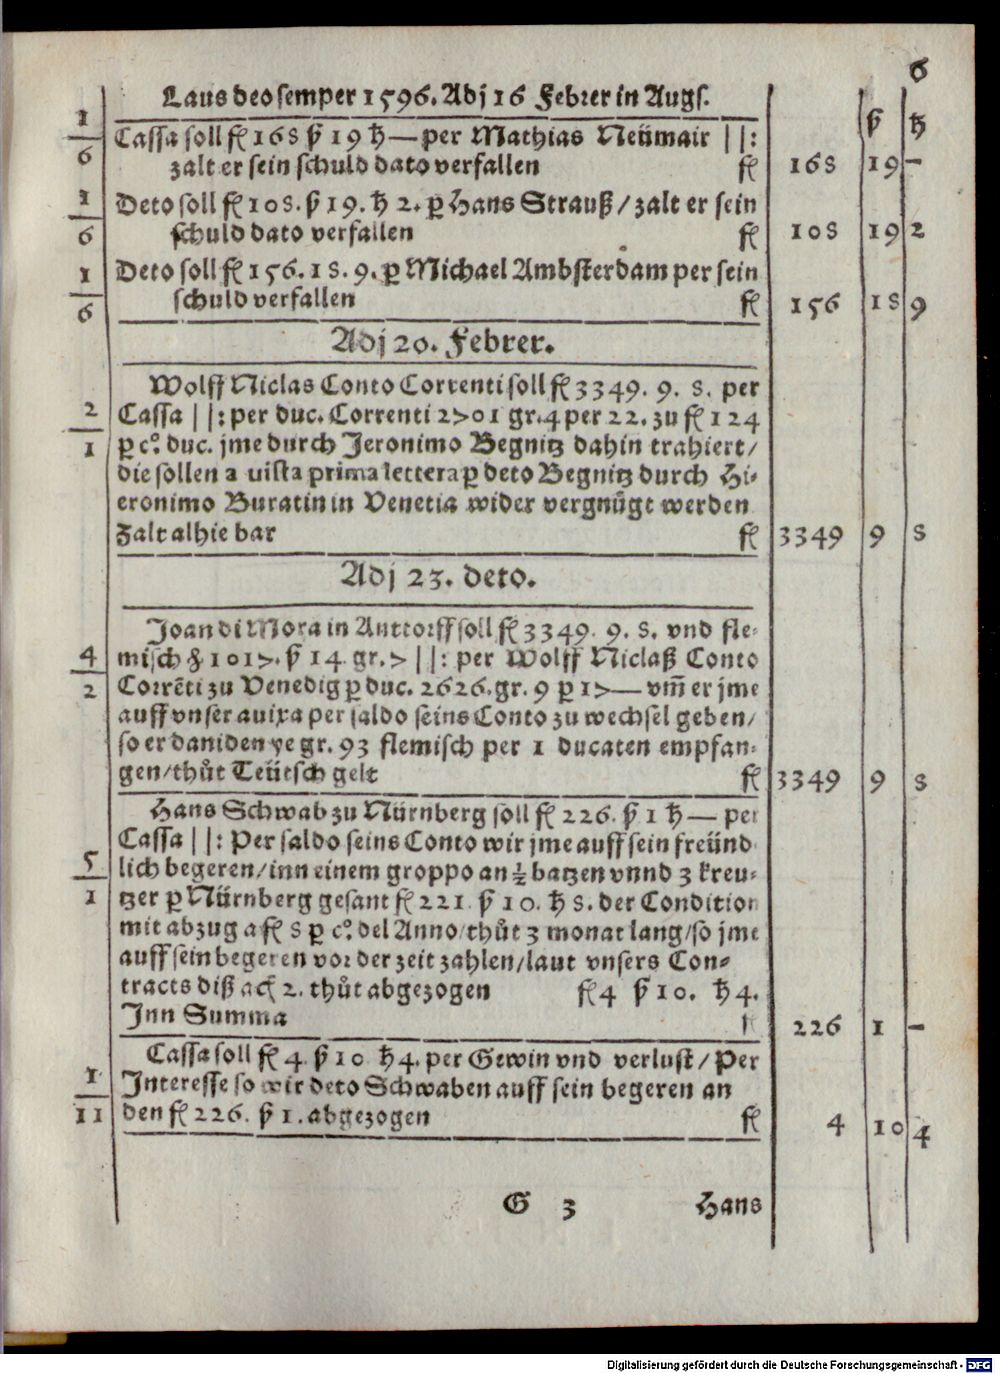 6
Laus deo semper 1596. Adj 16 Febrer in Augs.
ß ħ
1/6 Cassa soll fl 168 ß 19 ħ — per Mathias Neümair ||:
zalt er sein schuld dato verfallen fl 168 19 –
1/6 Deto soll fl 108. ß 19. ħ 2. ꝑ Hans Strauß / zalt er sein
schuld dato verfallen fl 108 19 2
1/6 Deto soll fl 156. 18. 9. ꝑ Michael Ambsterdam per sein
schuld verfallen fl 156 18 9
Adj 20. Febrer.
Wolff Niclas Conto Correnti soll fl 3349. 9. 8. per
2/1 Cassa ||: per duc. Correnti 2701 gr. 4 per 22. zu fl 124
ꝑ co. duc. jme durch Jeronimo Begnitz dahin trahiert /
die sollen a uista prima lettera ꝑ deto Begnitz durch Hi-
eronimo Buratin in Venetia wider vergnügt werden
Zalt alhie bar fl 3349 9 8
Adj 23. deto.
Joan di Mora in Anttorff soll fl 3349. 9. 8. vnd fle-
4/2 misch ₰ 1017. ß 14. gr. 7 ||: per Wolff Niclaß Conto
Corrēti zu Venedig ꝑ duc. 2626. gr. 9 ꝑ 17 — vm̄ er jme
auff vnser auixa per saldo seins Conto zu wechsel geben /
so er daniden ye gr. 93 flemisch per 1 ducaten empfan-
gen / thůt Teütsch gelt fl 3349 9 8
Hans Schwab zu Nürnberg soll fl 226. ß 1 ħ — per
Cassa ||: Per saldo seins Conto wir jme auff sein freünd
5/1 lich begeren / inn einem groppo an ½ batzen vnnd 3 kreu-
tzer ꝑ Nürnberg gesant fl 221. ß 10. ħ 8. der Condition
mit abzug a fl 8 ꝑ co. del Anno / thůt 3 monat lang / so jme
auff sein begeren vor der zeit zahlen / laut vnsers Con-
tracts diß ac 2. thůt abgezogen fl 4 ß 10. ħ 4.
Inn Summa fl 226 1 –
Cassa soll fl 4. ß 10 ħ 4. per Gewin vnd verlust / Per
1/11 Interesse so wir deto Schwaben auff sein begeren an
den fl 226. ß 1. abgezogen fl 4 10 4
G 3 Hans
Digitalisierung gefördert durch die Deutsche Forschungsgemeinschaft - DFG